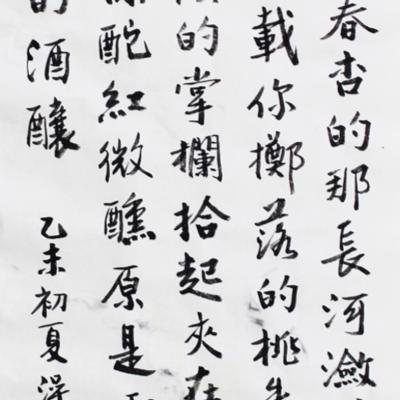 春杏的那長河瀲
載你擲落的桃
的掌欄拾起夾在
酡紅微醺原是
的酒釀
乙未初夏